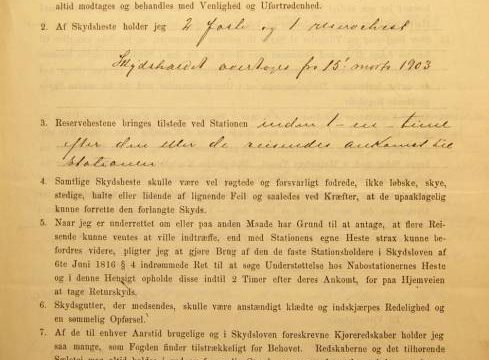 altid modtages og behandles med Venlighed og Ufortrødenhed.
2. Af Skydsheste holder jeg 2 faste og 1 reservehest
Skydsholdet overtages fra 15' marts 1903
3. Reservehestene bringes tilstede ved Stationen inden 1 - en - time
efter den eller de reisendes ankomst til
stationen
4. Samtlige Skydsheste skulle være vel røgtede og forsvarligt fodrede, ikke løbske, skye,
stedige, halte eller lidende af lignende Feil og saaledes ved Kræfter, at de upaaklagelig
kunne forrette den forlangte Skyds.
5. Naar jeg er underrettet om eller paa anden Maade har Grund til at antage, at flere Rei-
sende kunne ventes at ville indtræffe, end med Stationens egne Heste strax kunne be-
fordres videre, pligter jeg at gjøre Brug af den de faste Stationsholdere i Skydsloven af
6te Juni 1816 § 4 indrømmede Ret til at søge Understøttelse hos Nabostationernes Heste
og i denne Hensigt opholde disse indtil 2 Timer efter deres Ankomst, for paa Hjemveien
at tage Returskyds.
6. Skydsgutter, der medsendes, skulle være anstændigt klædte og indskjærpes Redelighed og
en sømmelig Opførsel.
7. Af de til enhver Aarstid brugelige og i Skydsloven foreskrevne Kjøreredskaber holder jeg
saa mange, som Fogden finder tilstrækkeligt for Behovet. Redskaberne og det tilhørende